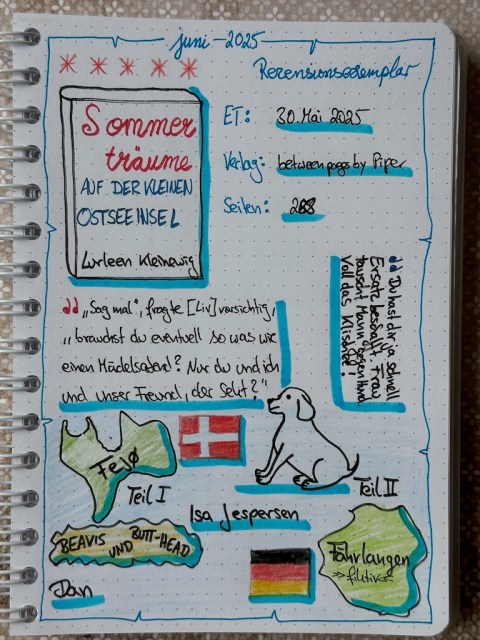 juni - 2025
Rezensionsexemplar
Sommer
träume
AUF DER KLEINEN
OSTSEEINSEL
Lurleen Kleinewig
ET: 30. Mai 2025
Verlag: betweenpages by Piper
Seiten: 288
„Sag mal", fragte [Liv] vorsichtig,
„brauchst du eventuell so was wie
einen Mädelsabend? Nur du und ich
und unser Freund, der Sekt?"
Du hast dir ja schnell
Ersatz beschafft. Frau
tauscht Mann gegen Hund.
Voll das Klischee!
Fejø
Teil I
Teil II
Isa Jespersen
BEAVIS UND BUTT-HEAD
Jan
Fährlangen
»fiktiv«